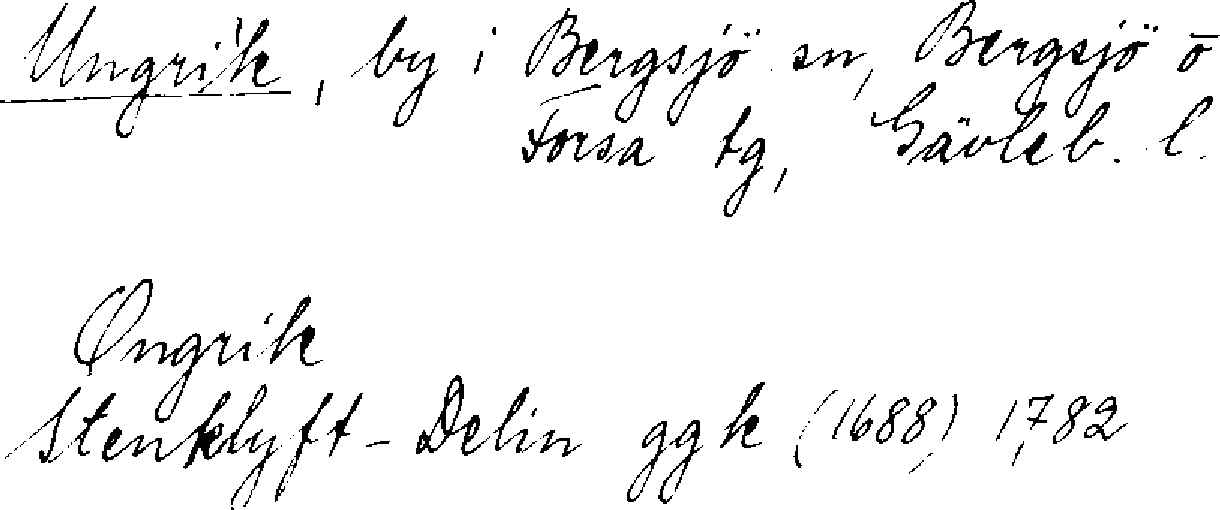 Ungrik, by i Bergsjö sn, Bergsjö o
Forsa tg, Gävleb. l.
Øngrik
Stenklyft-Delin ggk (1688) 1782